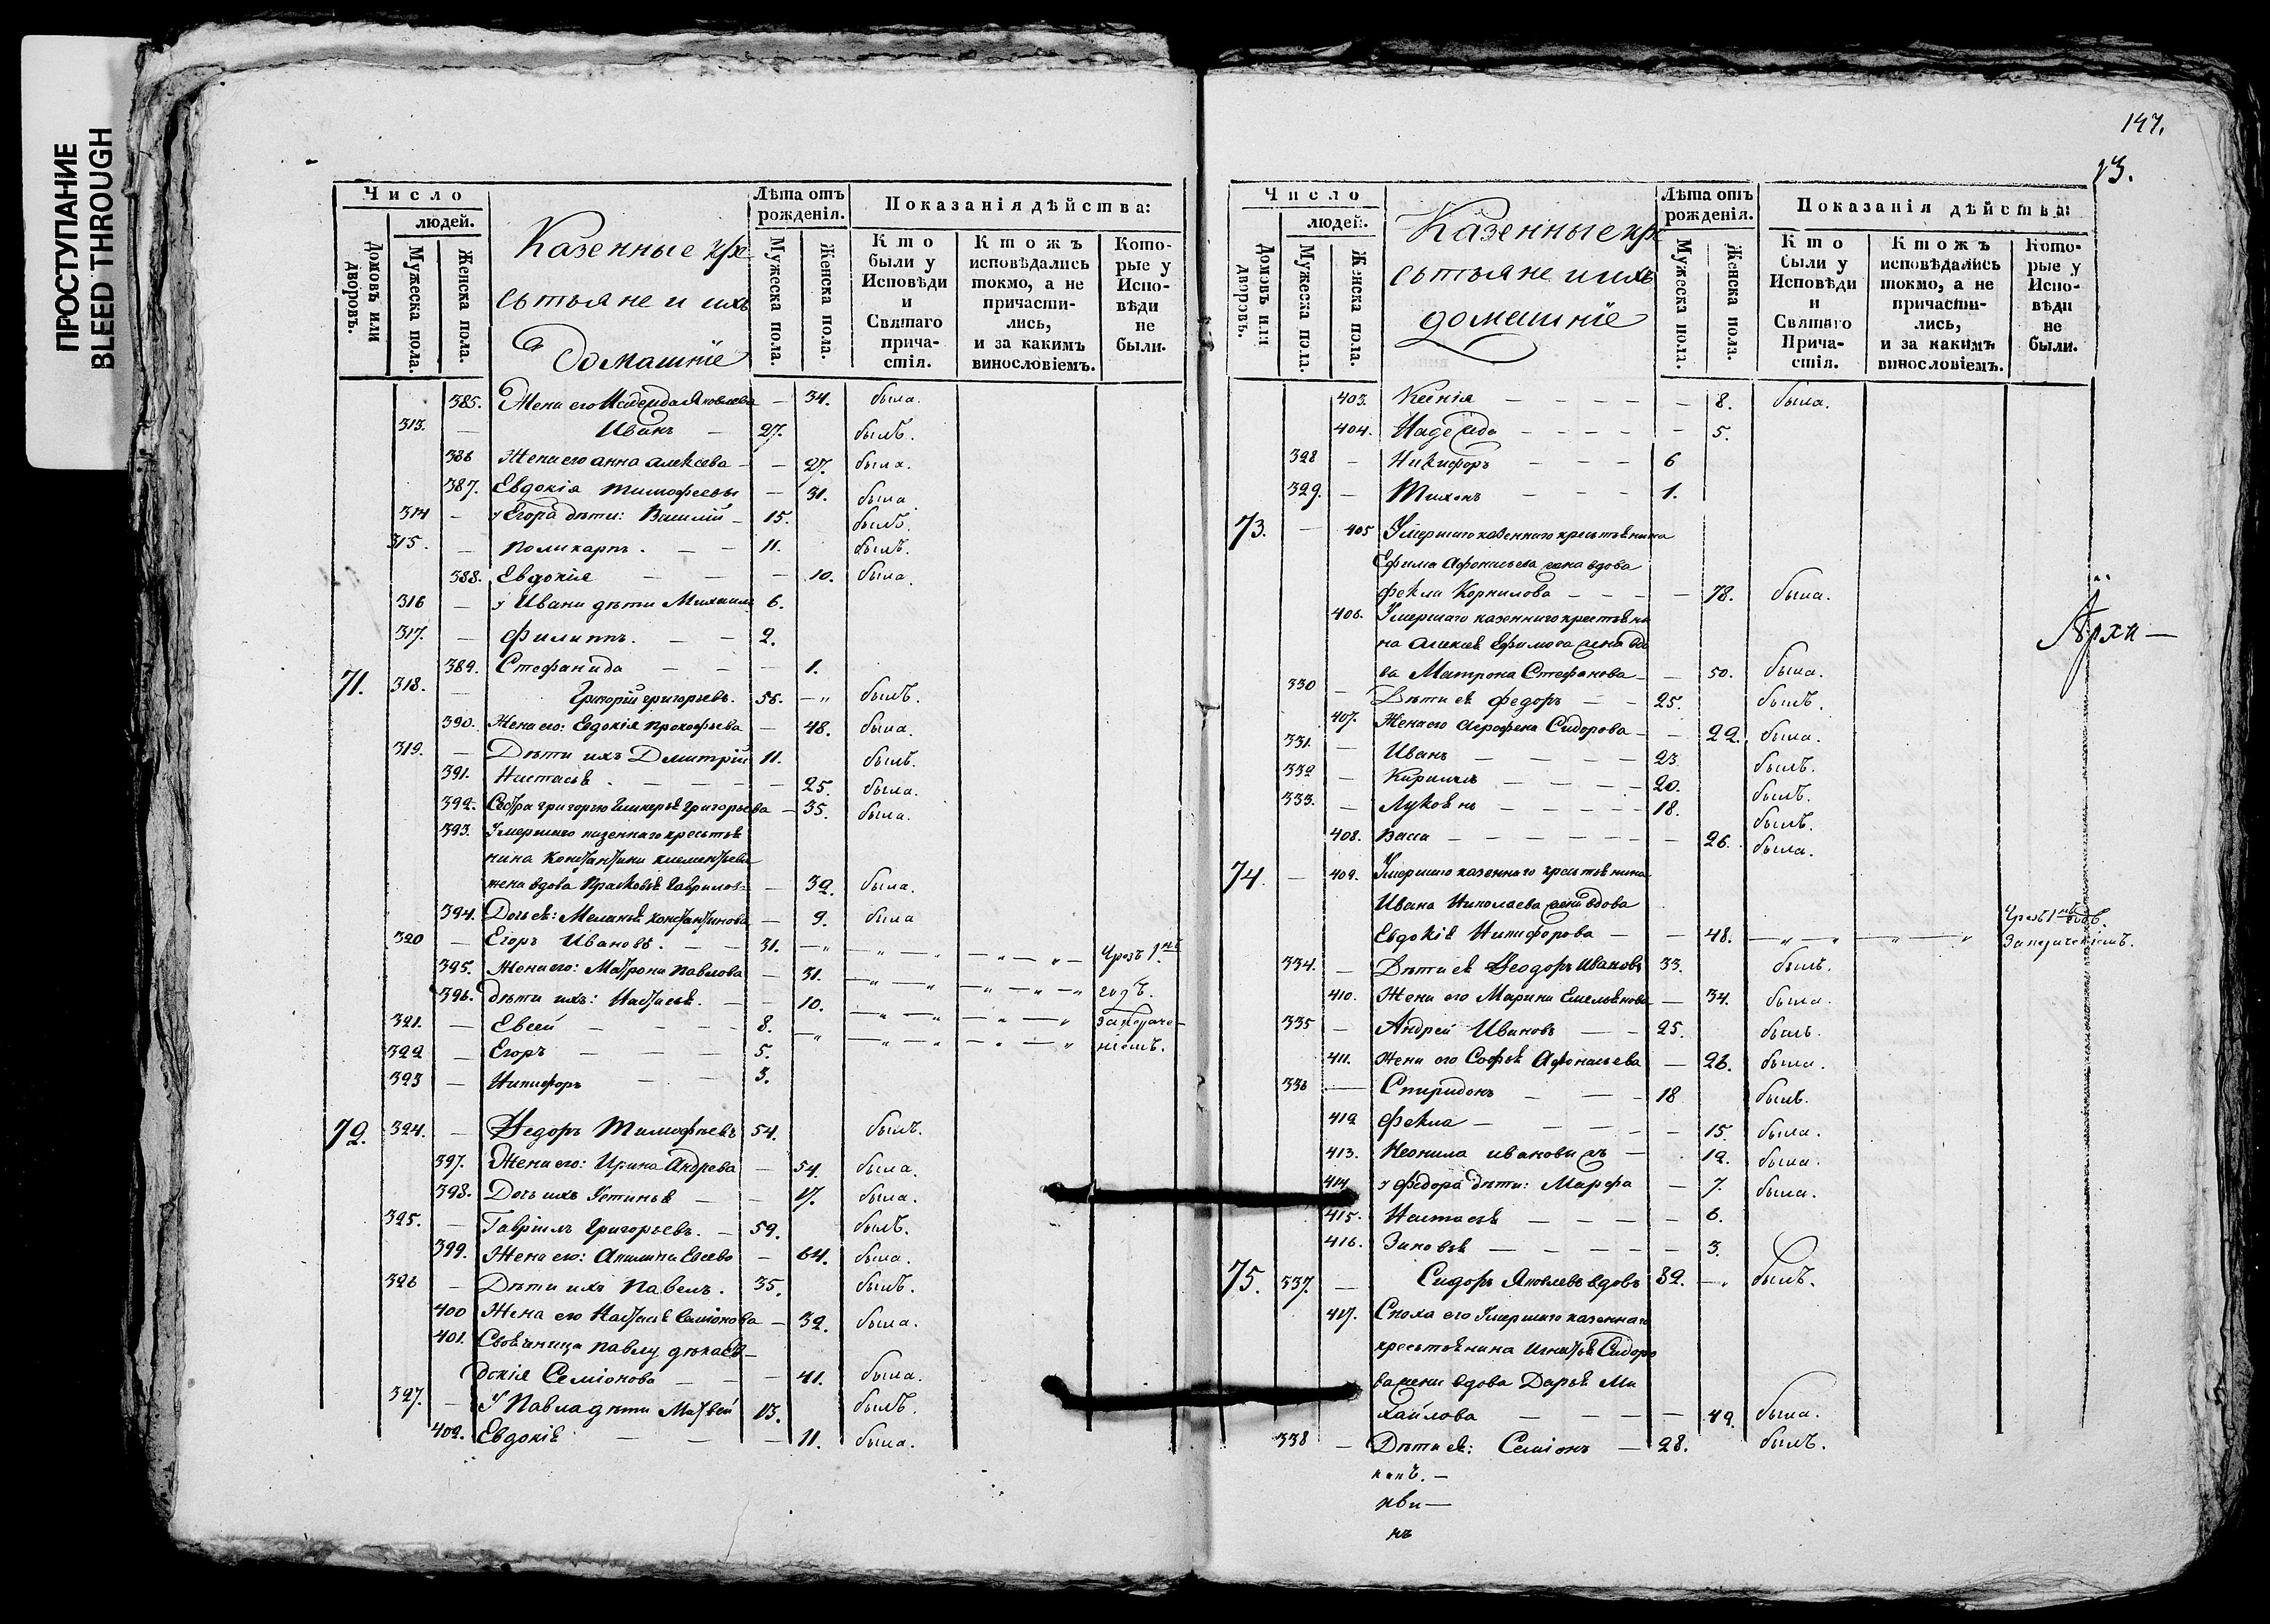 ПРОСТУПАНИЕ
BLEED THROUGH
Число
людей.
Домовъ или дворовъ.
Мужеска пола.
Женска пола.
Казенные кре
стьяне и ихъ
Домашніе
Лѣта отъ рожденія.
Мужеска пола.
Женска пола.
Показанія дѣйства:
Кто были у Исповѣди и Святаго причастія.
Ктожъ исповѣдались токмо, а не причастились, и за какимъ винословіемъ.
Которые у Исповѣди не были.
385. Жена его Надежда Яковлева — 34. была.
313. — Иванъ — 27. былъ.
386 Жена его анна алексева — — 27. была.
387. Евдокія тимофеева — 31. была
314 — у Егора дѣти: Василій — 15. былъ.
315. — поликарпъ. — — 11. былъ.
388. Евдокія — — — 10. была.
316 — у Ивана дѣти Михаилъ 6.
317. — филиппъ. — — 2.
389. Стефанида — — — 1.
71. 318. — Григорій григорьевъ. 56. — „ былъ.
390. Жена его: Евдокія прокофьева — 48. была.
319. — Дѣти ихъ Димитрій 11. былъ.
391. Настасья. — — — — 25. была.
392. Сестра григорію Гликерья григорьева — 35. была.
393. Умершаго казеннаго крестья
нина константина клементьева
жена вдова Прасковья Гаврилов= — 32. была.
394. Дочь ея: Меланья константинова — 9. была
320 — Егоръ Ивановъ. — — 31. — „ — „ — „ — „ — „ — Чрезъ 1.нъ
395. Жена его: Матрона павлова — 31. — „ — „ — „ — „ — „ годъ.
396. дѣти ихъ: Настасья. — — 10. — „ — „ — „ — „ запераче-
321. — Евсей — — — 8. — „ — „ — „ — „ — „ ніемъ.
322 — Егоръ — — — 5.
323 — Никифоръ — — 3.
72. 324. — Федоръ Тимофѣевъ 54. былъ.
397. Жена его: Ирина Андрева — 54. была.
398. Дочь ихъ Устинья — — 17. была.
325. — Гавріилъ Григорьевъ. — 59. былъ.
399. Жена его: Акилина Евсева — 64. была.
326 — Дѣти ихъ Павелъ. 35. былъ.
400 Жена его Настасья Семіонова — 32. была.
401. Своячиница павлу дѣка Ев-
докія Семіонова — — — 41. была.
327. — У Павла дѣти Матвей 13. былъ.
402. Евдокія — — — 11. была.
147.
13.
Число
людей.
Домовъ или дворовъ.
Мужеска пола.
Женска пола.
Казенные кре
стьяне и ихъ
домашніе
Лѣта отъ рожденія.
Мужеска пола.
Женска пола.
Показанія дѣйства:
Кто были у Исповѣди и Святаго Причастія.
Ктожъ исповѣдались токмо, а не причастились, и за какимъ винословіемъ.
Которые у Исповѣди не были.
403. Ксенія — — — — — 8. была.
404. Надежда — — — — — 5.
328 — Никифоръ — — — 6
329. — Тихонъ — — — 1.
73. — 405 Умершаго казеннаго крестьянина
Ефима Афонасьева жена вдова
фекла Корнилова — — — — 78. была.
406. Умершаго казеннаго крестьяни
на алексея Ефимова жена вдо
ва Матрона Стефанова — — 50. была.
Архи —
330 — Дѣти ея федоръ — — 25. былъ.
407. Жена его Агрофена Сидорова — — 22. была.
331. — Иванъ — — — — 23 былъ.
332 — Кирилъ — — — — 20. былъ.
333. — Лукьянъ — — — — 18. былъ.
408. Васса — — — — — — 26. была.
74. — 409. Умершаго казеннаго крестьянина
Ивана Николаева жена вдова
Чрез 1нъ год.
Евдокія Никифорова — — 48. — „ — „ — „ — „ запераченіемъ.
334. — Дѣти ея Феодоръ Ивановъ 33. былъ.
410. Жена его Марина Емельянова — 34. была.
335 — Андрей Ивановъ — — 25. былъ.
411. Жена его Софья Афонасьева — 26. была.
336 — Спиридонъ — — — 18 былъ.
412 фекла — — — — — 15. была.
413. Неонила ивановичъ — . 12. была.
414 у федора дѣти: Марфа — 7. была.
415. Настасья — — — — 6.
416. Зиновья — — — — — 3.
75. 337. — Сидоръ Яковлевъ вдовъ 82. — „ былъ.
417. Сноха его Умершаго казеннаго
крестьянина Игнатья Сидоро
ва жена вдова Дарья Ми
хайлова — — — — — 49. была.
338 — Дѣти ея: Семіонъ — 28. былъ.
нъ